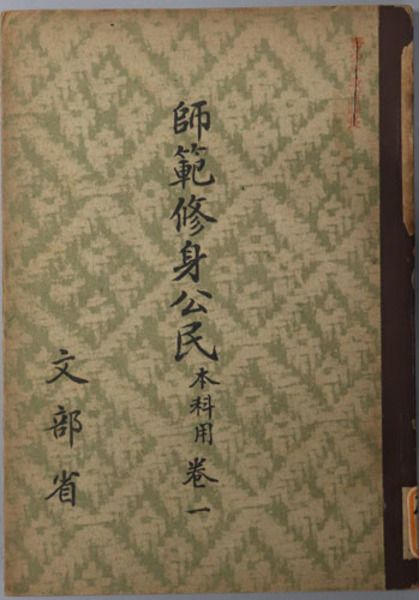 師範修身公民 本科用 卷一
文部省